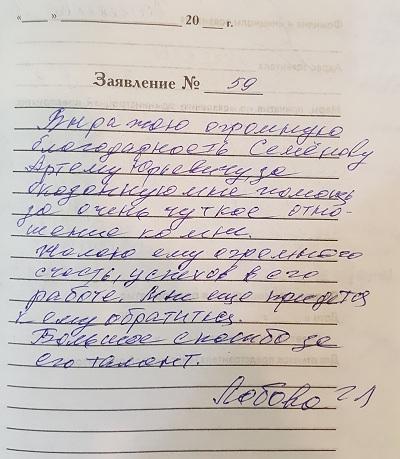 «___» ______________ 20___ г.
Заявление № 59
Выражаю огромную
благодарность Семёнову
Артему Юрьевичу за
оказанную мне помощь
за очень чуткое отно-
шение ко мне.
Желаю ему огромного
счасть, успехов в его
работе. Мне еще придется
к ему обратится.
Большое спасибо за
его талант.
Лобова